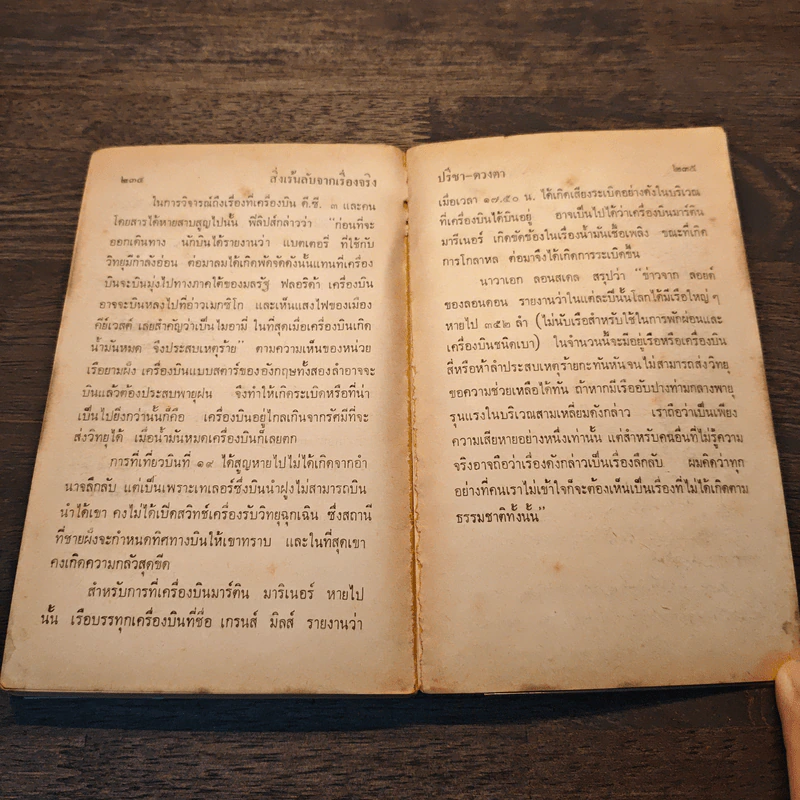 ๒๓๔ สิ่งเร้นลับจากเรื่องจริง
ในการวิจารณ์ถึงเรื่องที่เครื่องบิน ดี.ซี. ๓ และคน
โดยสารได้หายสาบสูญไปนั้น พีลิปส์กล่าวว่า "ก่อนที่จะ
ออกเดินทาง นักบินได้รายงานว่า แบตเตอรี่ ที่ใช้กับ
วิทยุมีกำลังอ่อน ต่อมาลมได้เกิดพัดจัดดังนั้นแทนที่เครื่อง
บินจะบินมุ่งไปทางภาคใต้ของมลรัฐ ฟลอริด้า เครื่องบิน
อาจจะบินหลงไปที่อ่าวเมกซิโก และเห็นแสงไฟของเมือง
คีย์เวสต์ เลยสำคัญว่าเป็นไมอามี่ ในที่สุดเมื่อเครื่องบินเกิด
น้ำมันหมด จึงประสบเหตุร้าย" ตามความเห็นของหน่วย
เรือยามฝั่ง เครื่องบินแบบสตาร์ของอังกฤษทั้งสองลำอาจจะ
บินแล้วต้องประสบพายุฝน จึงทำให้เกิดระเบิดหรือที่น่า
เป็นไปยิ่งกว่านั้นก็คือ เครื่องบินอยู่ไกลเกินจากรัศมีที่จะ
ส่งวิทยุได้ เมื่อน้ำมันหมดเครื่องบินก็เลยตก
การที่เที่ยวบินที่ ๑๙ ได้สูญหายไปไม่ได้เกิดจากอำ
นาจลึกลับ แต่เป็นเพราะเทเลอร์ซึ่งบินนำฝูงไม่สามารถบิน
นำได้เขา คงไม่ได้เปิดสวิทช์เครื่องรับวิทยุฉุกเฉิน ซึ่งสถานี
ที่ชายฝั่งจะกำหนดทิศทางบินให้เขาทราบ และในที่สุดเขา
คงเกิดความกลัวสุดขีด
สำหรับการที่เครื่องบินมาร์ติน มาริเนอร์ หายไป
นั้น เรือบรรทุกเครื่องบินที่ชื่อ เกรนส์ มิลส์ รายงานว่า
ปรีชา–ดวงตา ๒๓๕
เมื่อเวลา ๑๗.๕๐ น. ได้เกิดเสียงระเบิดอย่างดังในบริเวณ
ที่เครื่องบินได้บินอยู่ อาจเป็นไปได้ว่าเครื่องบินมาร์ติน
มาริเนอร์ เกิดขัดข้องในเรื่องน้ำมันเชื้อเพลิง ขณะที่เกิด
การโกลาหล ต่อมาจึงได้เกิดการระเบิดขึ้น
นาวาเอก ลอนสเดล สรุปว่า "ข่าวจาก ลอยด์
ของลอนดอน รายงานว่าในแต่ละปีนั้นโลกได้มีเรือใหญ่ ๆ
หายไป ๓๕๒ ลำ (ไม่นับเรือสำหรับใช้ในการพักผ่อนและ
เครื่องบินชนิดเบา) ในจำนวนนี้จะมีอยู่เรือหรือเครื่องบิน
สี่หรือห้าลำประสบเหตุร้ายกะทันหันจน ไม่สามารถส่งวิทยุ
ขอความช่วยเหลือได้ทัน ถ้าหากมีเรืออับปางท่ามกลางพายุ
รุนแรงในบริเวณสามเหลี่ยมดังกล่าว เราถือว่าเป็นเพียง
ความเสียหายอย่างหนึ่งเท่านั้น แต่สำหรับคนอื่นที่ไม่รู้ความ
จริงอาจถือว่าเรื่องดังกล่าวเป็นเรื่องลึกลับ ผมคิดว่าทุก
อย่างที่คนเราไม่เข้าใจก็จะต้องเห็นเป็นเรื่องที่ไม่ได้เกิดตาม
ธรรมชาติทั้งนั้น"